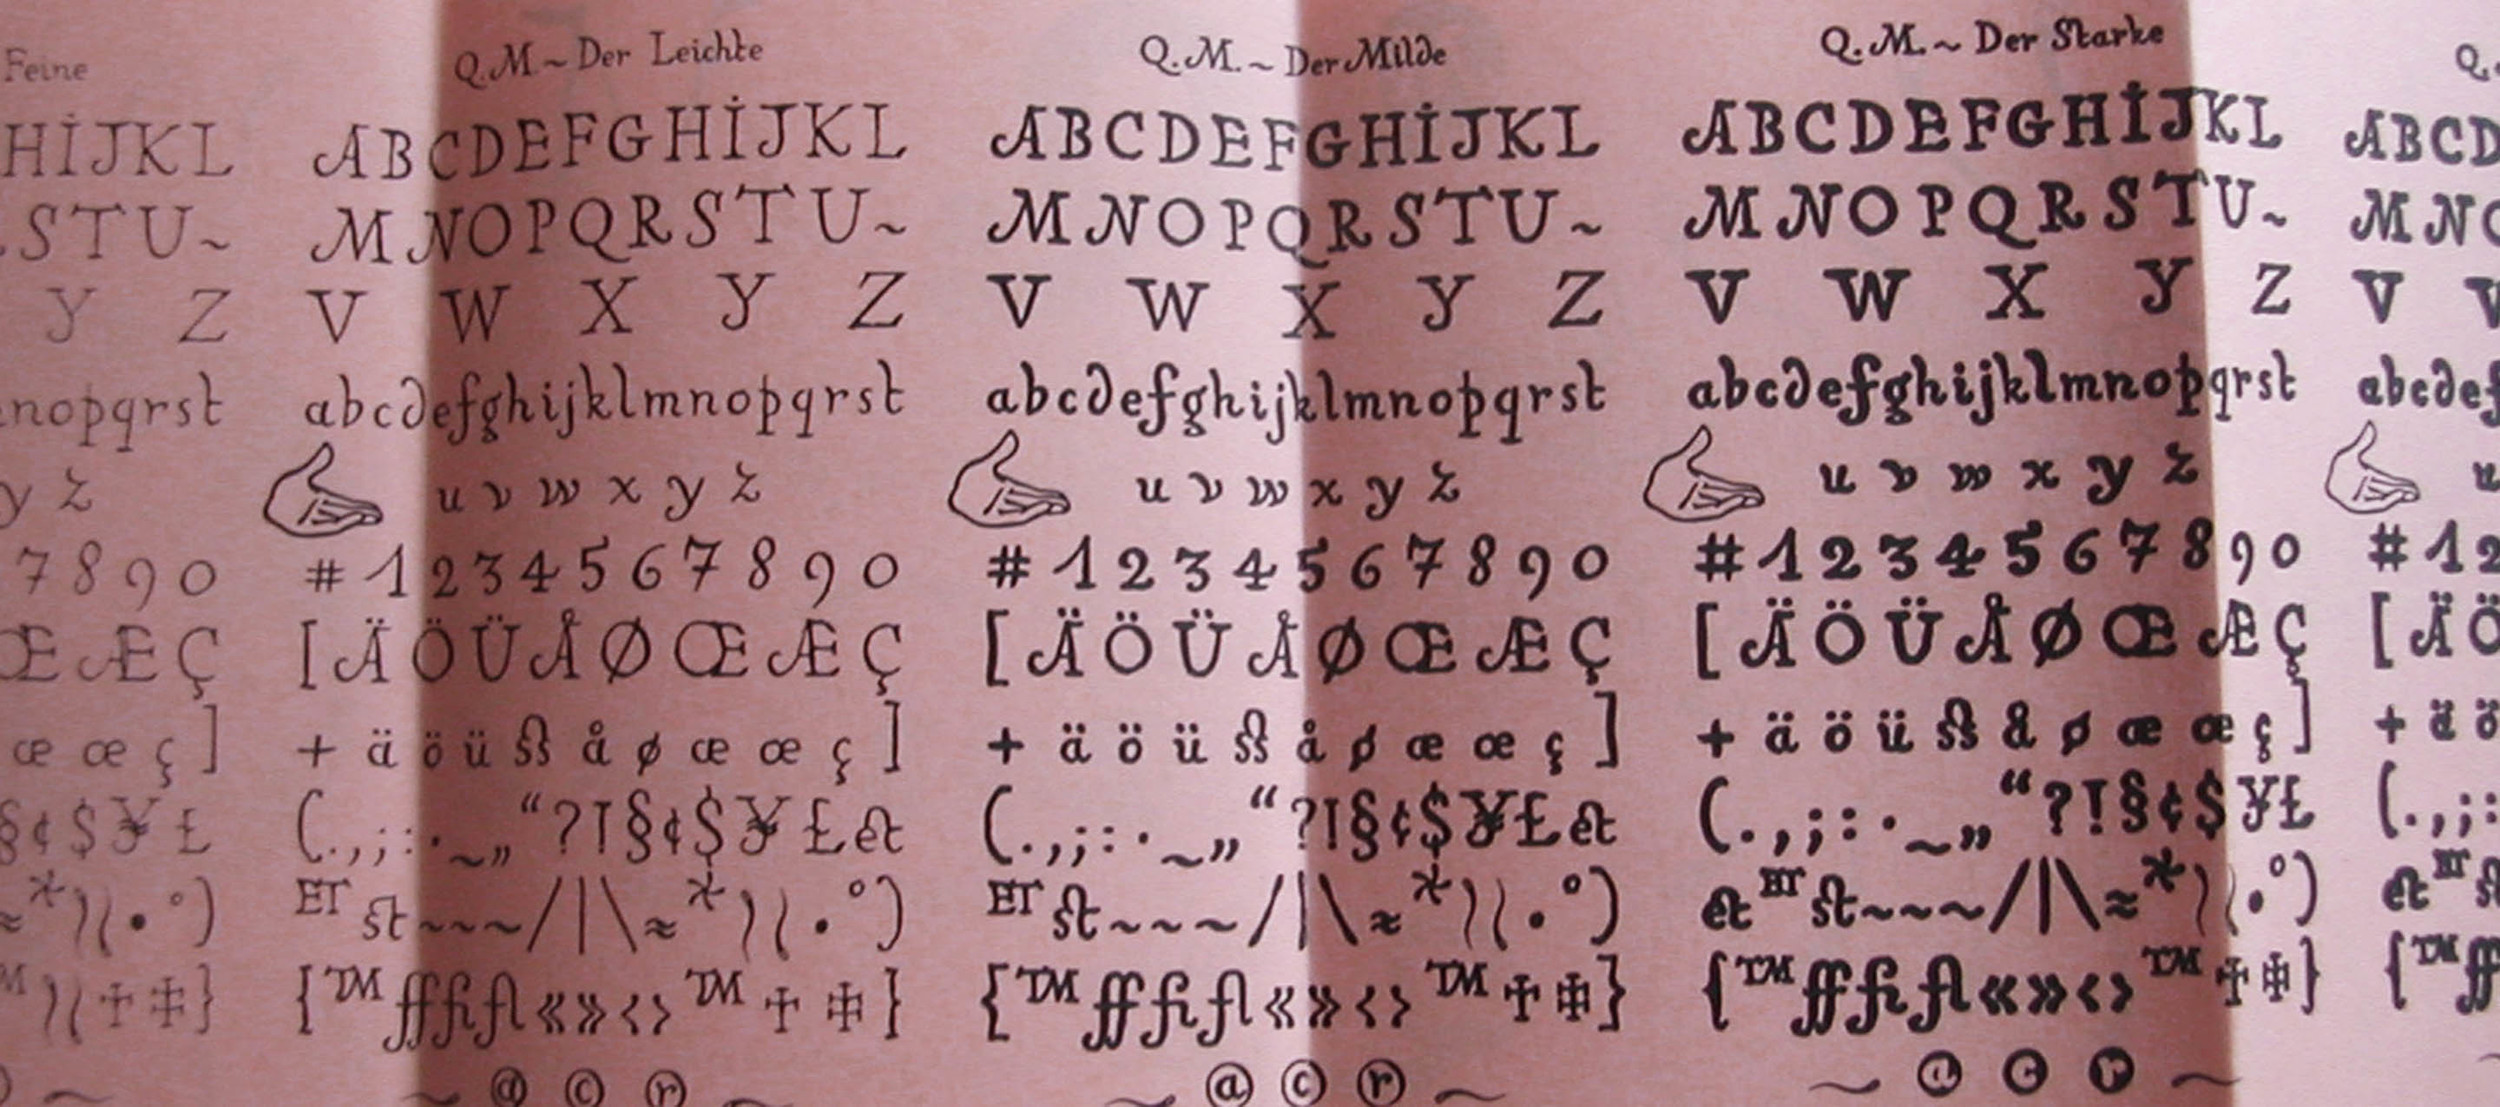 Feine
HİJKL
STU~
Y Z
nopqrst
y z
7 8 9 0
Œ Æ Ç
œ œ ç ]
§ ¢ $ ¥ £
≈ * ) ( • ° )
) ( ‡ }
Q.M~Der Leichte
ABCDEFGHİJKL
MNOPQRSTU~
V W X Y Z
abcdefghijklmnopqrst
u v w x y z
# 1 2 3 4 5 6 7 8 9 0
[ Ä Ö Ü Å Ø Œ Æ Ç
+ ä ö ü ß å ø œ œ ç ]
( . , ; : · ~ „ “ ? ! § ¢ $ ¥ £ et
ET st ~ ~ ~ / | \ ≈ * ) ( • ° )
{ TM ff fi fl « » ‹ › TM ‡ }
~ @ © ® ~
Q.M.~Der Milde
ABCDEFGHİJKL
MNOPQRSTU~
V W X Y Z
abcdefghijklmnopqrst
u v w x y z
# 1 2 3 4 5 6 7 8 9 0
[ Ä Ö Ü Å Ø Œ Æ Ç
+ ä ö ü ß å ø œ œ ç ]
( . , ; : · ~ „ “ ? ! § ¢ $ ¥ £ et
ET st ~ ~ ~ / | \ ≈ * ) ( • ° )
{ TM ff fi fl « » ‹ › TM ‡ }
~ @ © ® ~
Q.M.~Der Starke
ABCDEFGHİJKL
MNOPQRSTU~
V W X Y Z
abcdefghijklmnopqrst
u v w x y z
# 1 2 3 4 5 6 7 8 9 0
[ Ä Ö Ü Å Ø Œ Æ Ç
+ ä ö ü ß å ø œ œ ç ]
( . , ; : · ~ „ “ ? ! § ¢ $ ¥ £
et ET st ~ ~ ~ / | \ ≈ * ) ( • ° )
{ TM ff fi fl « » ‹ › TM ‡ }
~ @ © ® ~
Q.
ABCD
MNO
V
abcdef
u
# 1 2
[ Ä Ö
+ ä ö
( . , ; :
et ET
{ TM ff